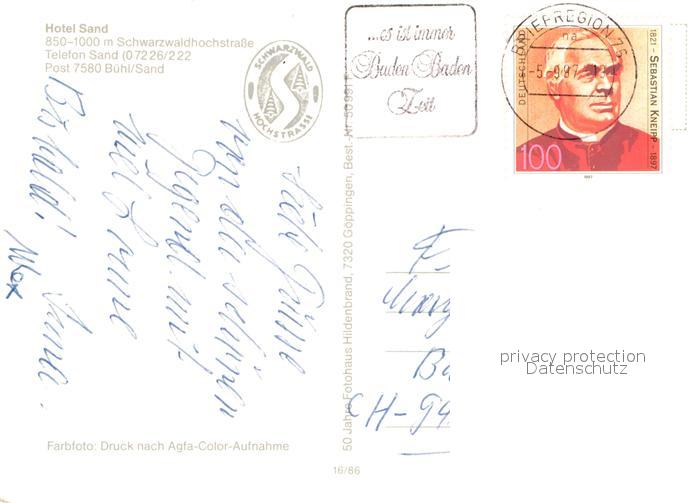 Hotel Sand
850–1000 m Schwarzwaldhochstraße
Telefon Sand (0 72 26/2 22
Post 7580 Bühl/Sand
SCHWARZWALD
HOCHSTRASSE
...es ist immer
Baden-Baden
Zeit
BRIEFREGION 76
na
DEUTSCHLAND
1821 - SEBASTIAN KNEIPP - 1897
100
1997
Liebe Grüße
von der schönen
Gegend mit
viel Sonne
Bis bald!
Max
50 Jahre Fotohaus Hildenbrand, 7320 Göppingen, Best.-Nr.
F
Marg
Ba
CH-94
privacy protection
Datenschutz
Farbfoto: Druck nach Agfa-Color-Aufnahme
16/86